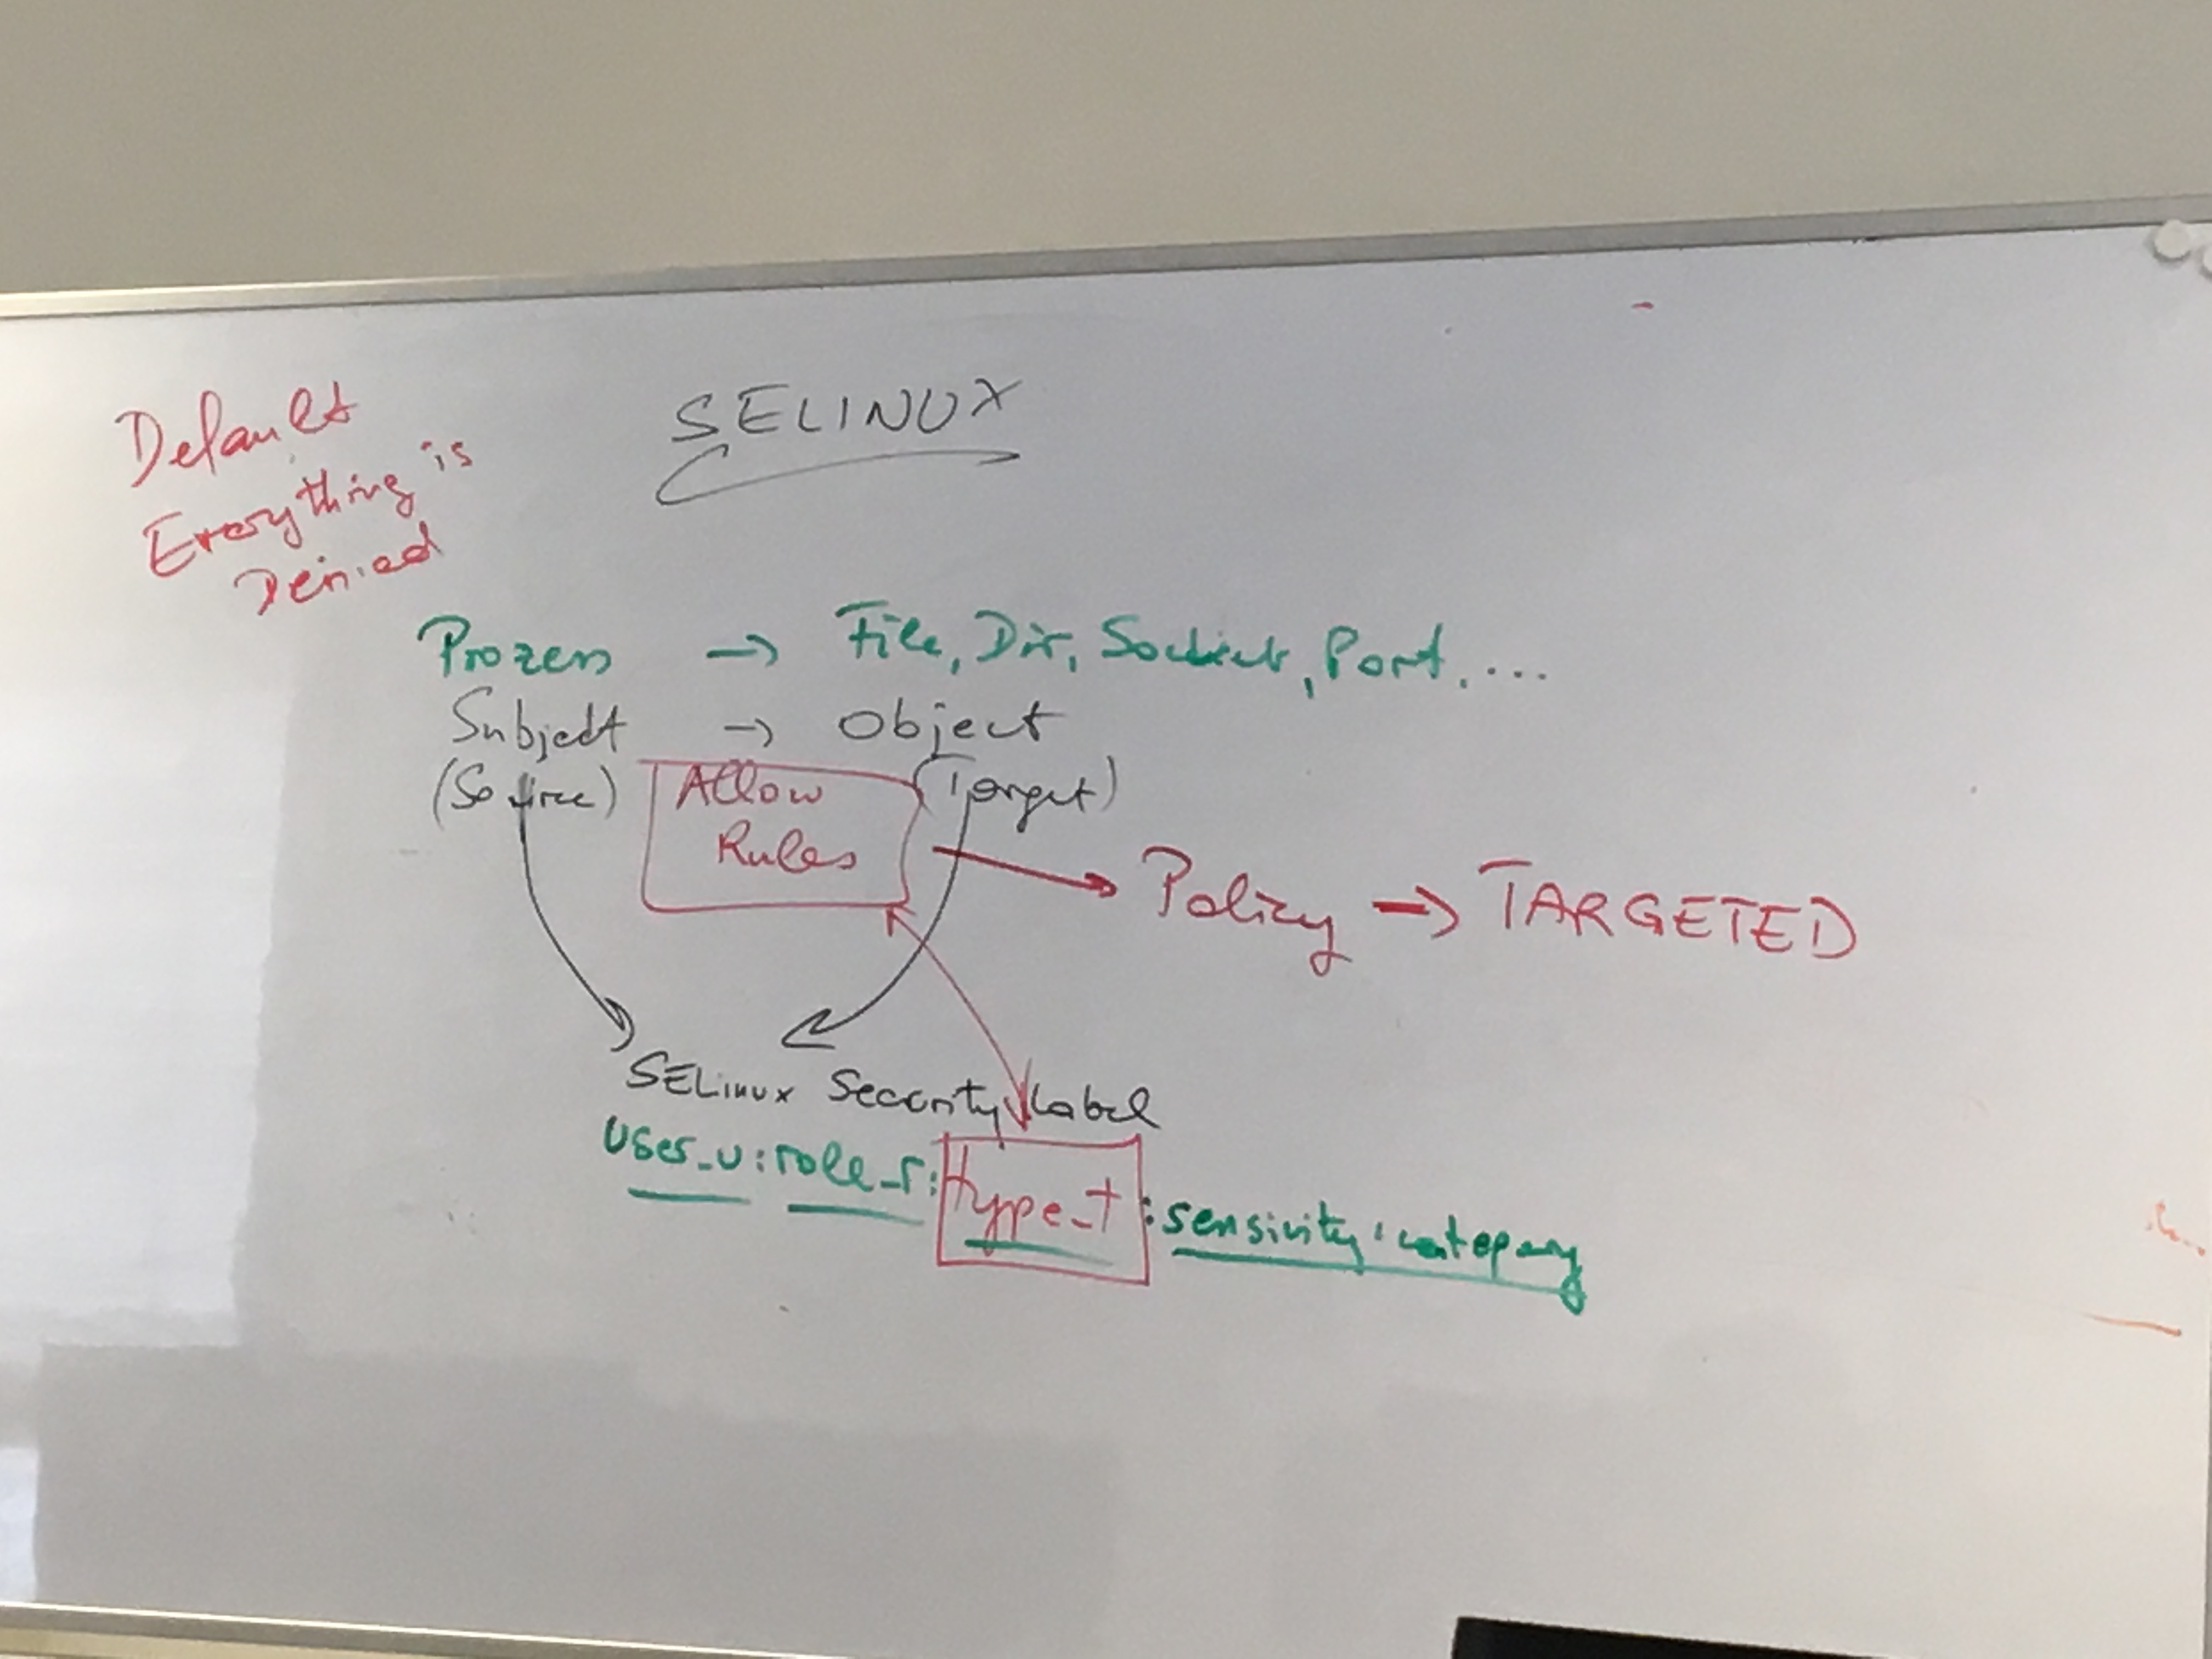 SELINUX
Default
Everything is
Denied
Prozess → File, Dir, Socket, Port, ...
Subject → Object
(Source) (Target)
Allow
Rules
→ Policy → TARGETED
SELinux Security Label
user_u:role_r:type_t:sensivity:category